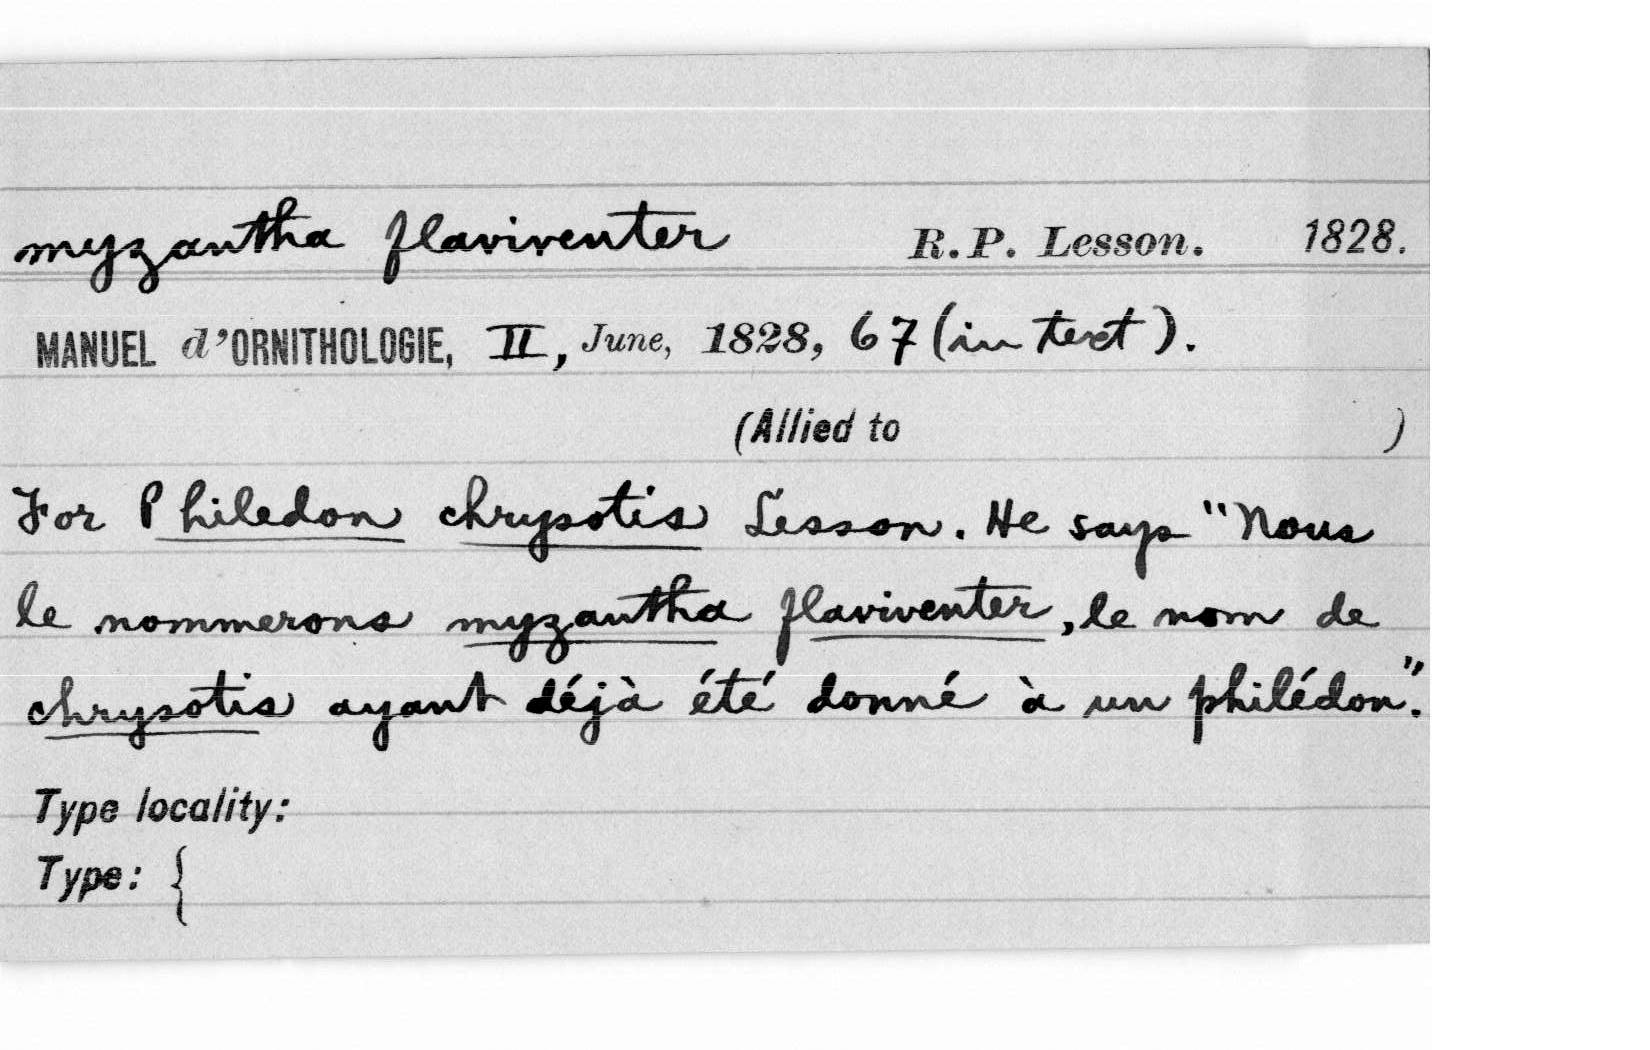 myzantha flaviventer R.P. Lesson. 1828.
MANUEL d'ORNITHOLOGIE, II, June, 1828, 67 (in text).
(Allied to )
For Philedon chrysotis Lesson. He says "Nous
le nommerons myzantha flaviventer, le nom de
chrysotis ayant déjà été donné à un philédon."
Type locality:
Type: {